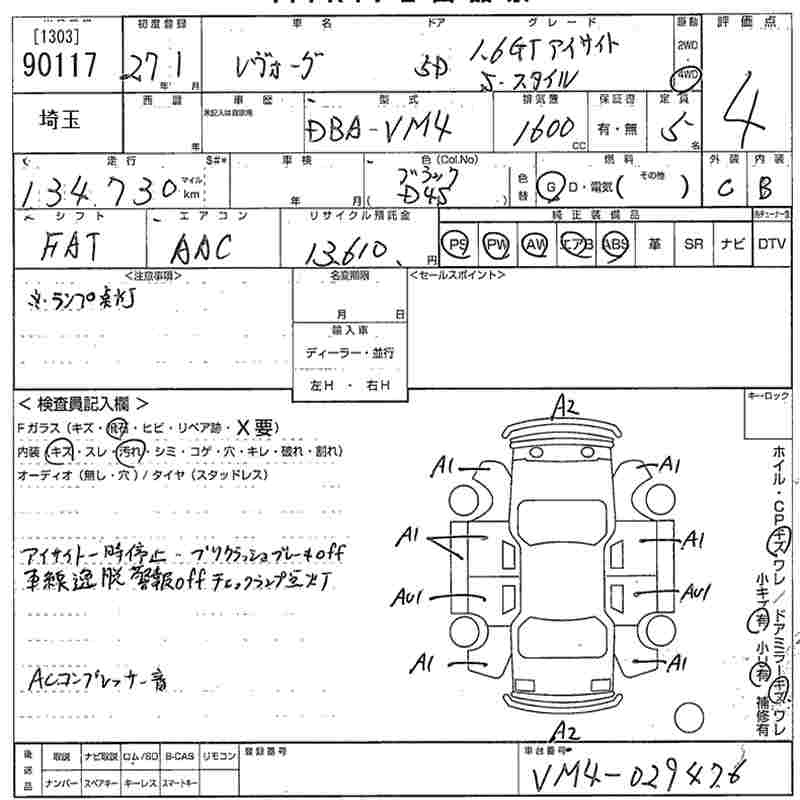 [1303]
90117
初度登録
27 年 1 月
車名
レヴォーグ
ドア
5D
グレード
1.6GT アイサイト
S-スタイル
駆動
2WD
4WD
評価点
4
埼玉
西暦
年
車歴
未記入は自家用
型式
DBA-VM4
排気量
1600 CC
保証書
有・無
定員
5 名
走行
134,730
マイル
km
S#*
車検
年 月
色(Col.No)
ブラック
( D45 )
色替
燃料
G・D・電気( その他 )
外装
C
内装
B
シフト
FAT
エアコン
AAC
リサイクル預託金
13,610 円
純正装備品
PS PW AW エアB ABS 革 SR ナビ DTV
<注意事項>
※ランプ点灯
名変期限
月 日
輸入車
ディーラー・並行
左H ・ 右H
<セールスポイント>
< 検査員記入欄 >
Fガラス(キズ・飛石・ヒビ・リペア跡・X要)
内装(キズ・スレ・汚れ・シミ・コゲ・穴・キレ・破れ・割れ)
オーディオ(無し・穴)/タイヤ(スタッドレス)
アイサイト一時停止 プリクラッシュブレーキoff
車線逸脱警報off チェックランプ点灯
ACコンプレッサー音
A2
A1 A1
A1 A1
AU1 AU1
A1 A1
A2
キーロック
ホイル・CPキズワレ/ドアミラーキズワレ
小キズ有 小U有 補修有
後送品
取説 ナビ取説 ロム/SD B-CAS リモコン
ナンバー スペアキー キーレス スマートキー
登録番号
車台番号
VM4-029476